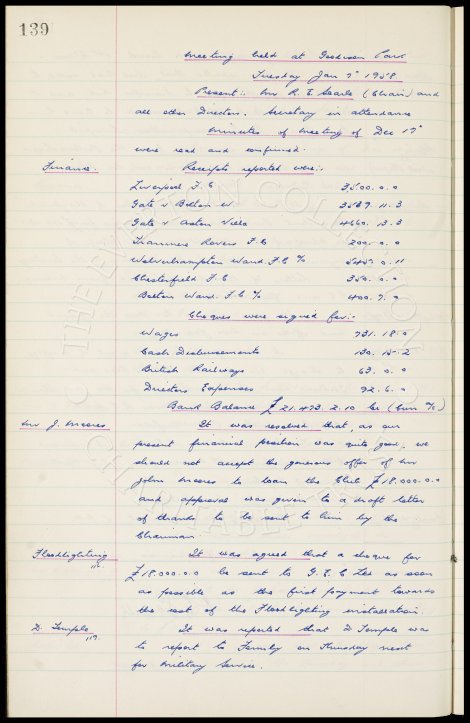 139
Meeting held at Goodison Park
Tuesday Jan 7th 1958
Present:- Mr R. E. Searle (Chair) and
all other Directors. Secretary in attendance
Minutes of meeting of Dec 17th
were read and confirmed.
Finance. Receipts reported were:-
Liverpool F.C 3500.0.0
Gate v Bolton W. 3587.11.3
Gate v Aston Villa 4660.13.3
Tranmere Rovers F.C 200.0.0
Wolverhampton Wand. F.C % 5457.0.11
Chesterfield F.C 350.0.0
Bolton Wand. F.C % 400.7.0
Cheques were signed for:-
Wages 731.18.0
Cash Disbursements 130.15.2
British Railways 63.0.0
Directors Expenses 92.6.0
Bank Balance £21.473.2.10 (Curr a/c)
Mr J. Moores It was resolved that, as our
present financial position was quite good, we
should not accept the generous offer of Mr
John Moores to loan the Club £18,000.0.0
and approval was given to a draft letter
of thanks to be sent to him by the
Chairman.
Floodlighting It was agreed that a cheque for
£18,000.0.0 be sent to G.E.C Ltd as soon
as possible as the first payment towards
the cost of the Floodlighting installation.
D. Temple It was reported that D Temple was
to report to on Thursday next
for Military Service.
THE EVERTON COLLECTION
CHARITABLE TRUST